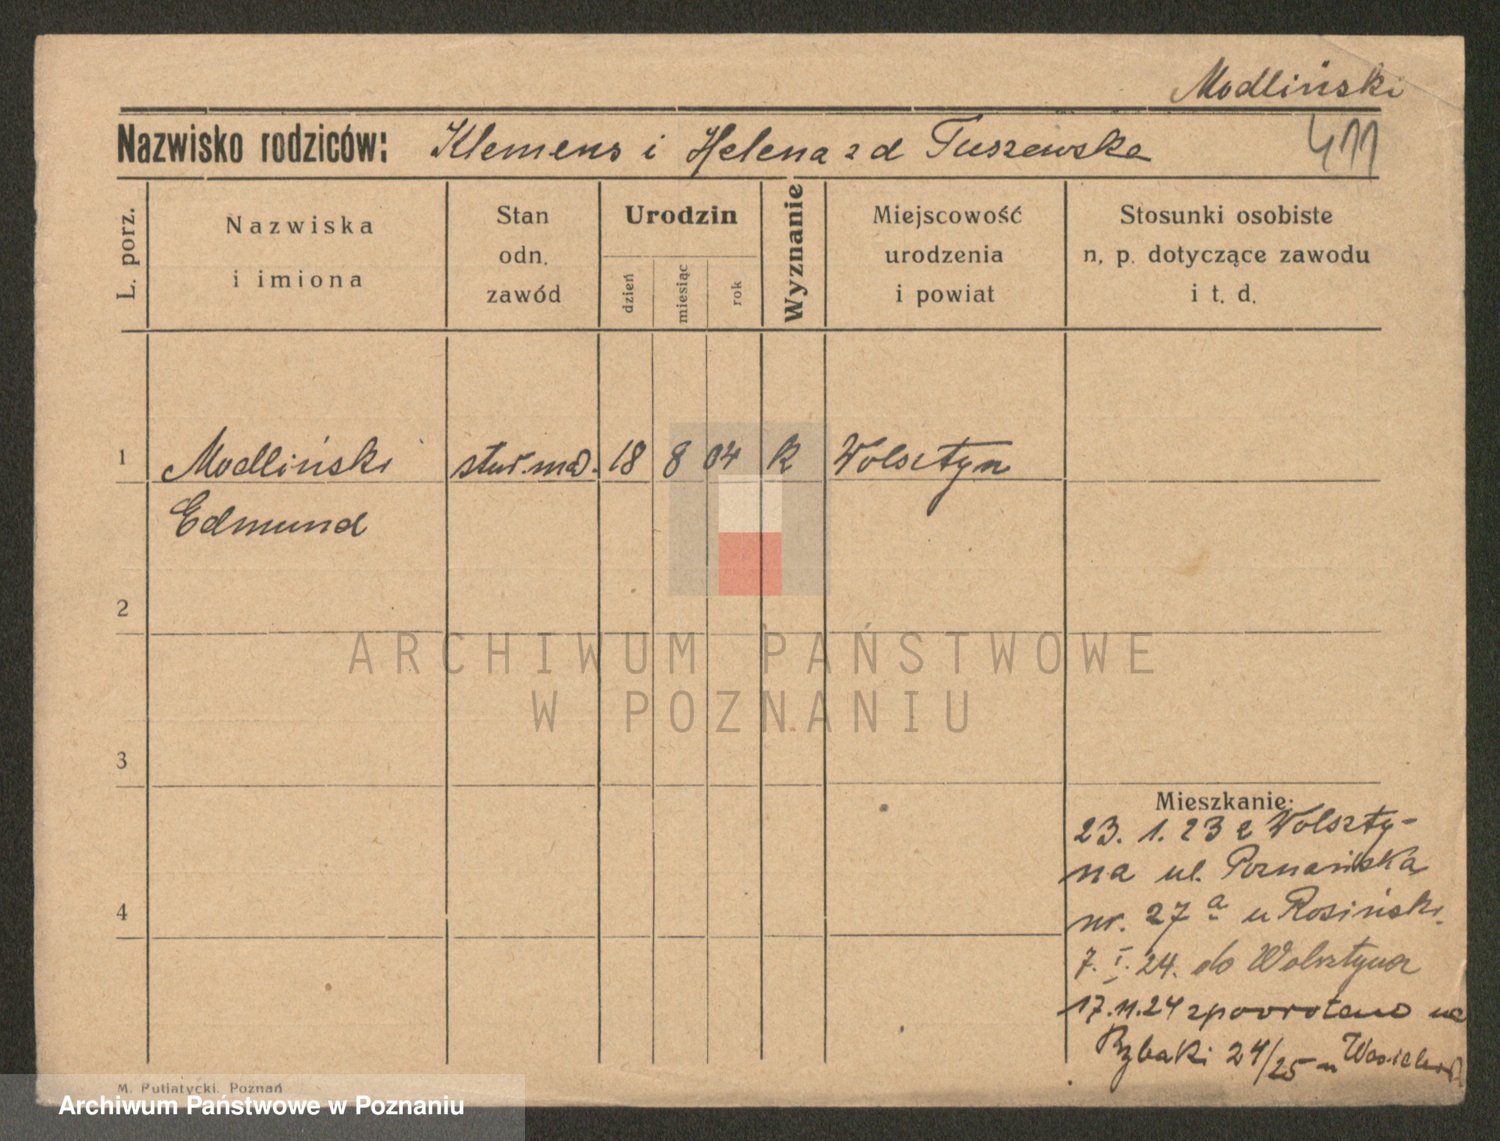 Modliński
Nazwisko rodziców: Klemens i Helena z d Tuszewska 411
L. porz.
Nazwiska
i imiona
Stan
odn.
zawód
Urodzin
dzień
miesiąc
rok
Wyznanie
Miejscowość
urodzenia
i powiat
Stosunki osobiste
n, p. dotyczące zawodu
i t. d.
1 Modliński stud. med. 18 8 04 k Wolsztyn
Edmund
2
3
4
Mieszkanie:
23. 1. 23 z Wolszty-
na ul. Poznańska
nr. 27 a u Rosiński.
7. I. 24. do Wolsztyna
17.11.24 zpowrotem na
Rybaki 24/25 u
M. Putiatycki, Poznań
ARCHIWUM PAŃSTWOWE
W POZNANIU
Archiwum Państwowe w Poznaniu